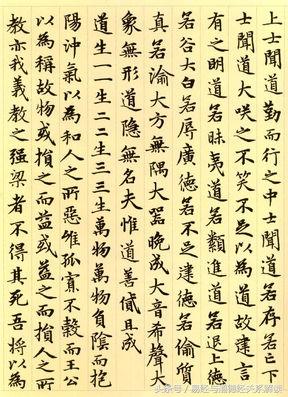 上士聞道勤而行之中士聞道若存若亡下
士聞道大咲之不笑不足以為道故建言
有之明道若昧夷道若類進道若退上德
若谷大白若辱廣德若不足建德若偷質
真若渝大方無隅大器晚成大音希聲大
象無形道隱無名夫惟道善貸且成
道生一一生二二生三三生萬物萬物負陰而抱
陽沖氣以為和人之所惡惟孤寡不穀而王公
以為稱故物或損之而益或益之而損人之所
教亦我義教之强梁者不得其死吾將以為
头条号/易经与道德经关系解读